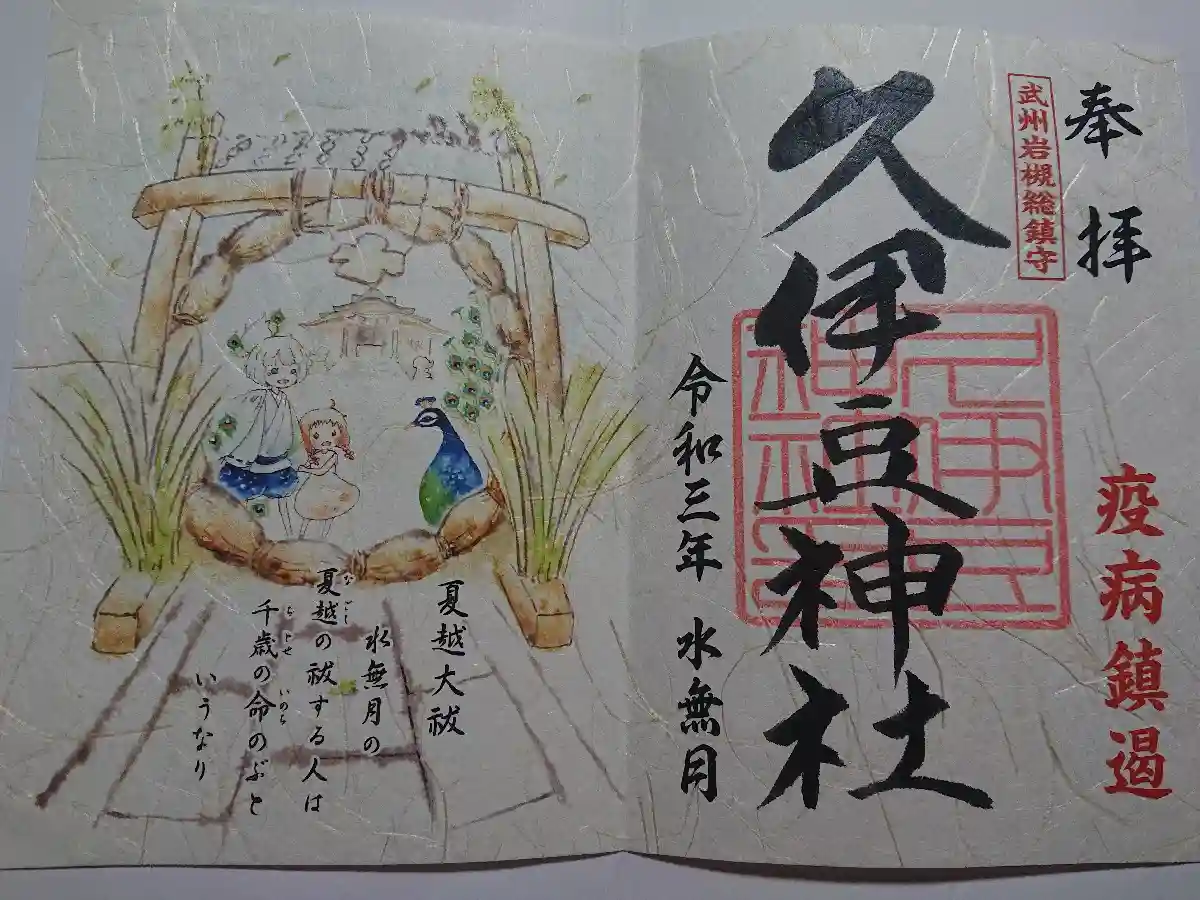 奉拝
武州岩槻総鎮守
疫病鎮遏
久伊豆神社
令和三年 水無月
夏越大祓
水無月の
夏越の祓する人は
なごし
千歳の命のぶと
ちとせ いのち
いうなり